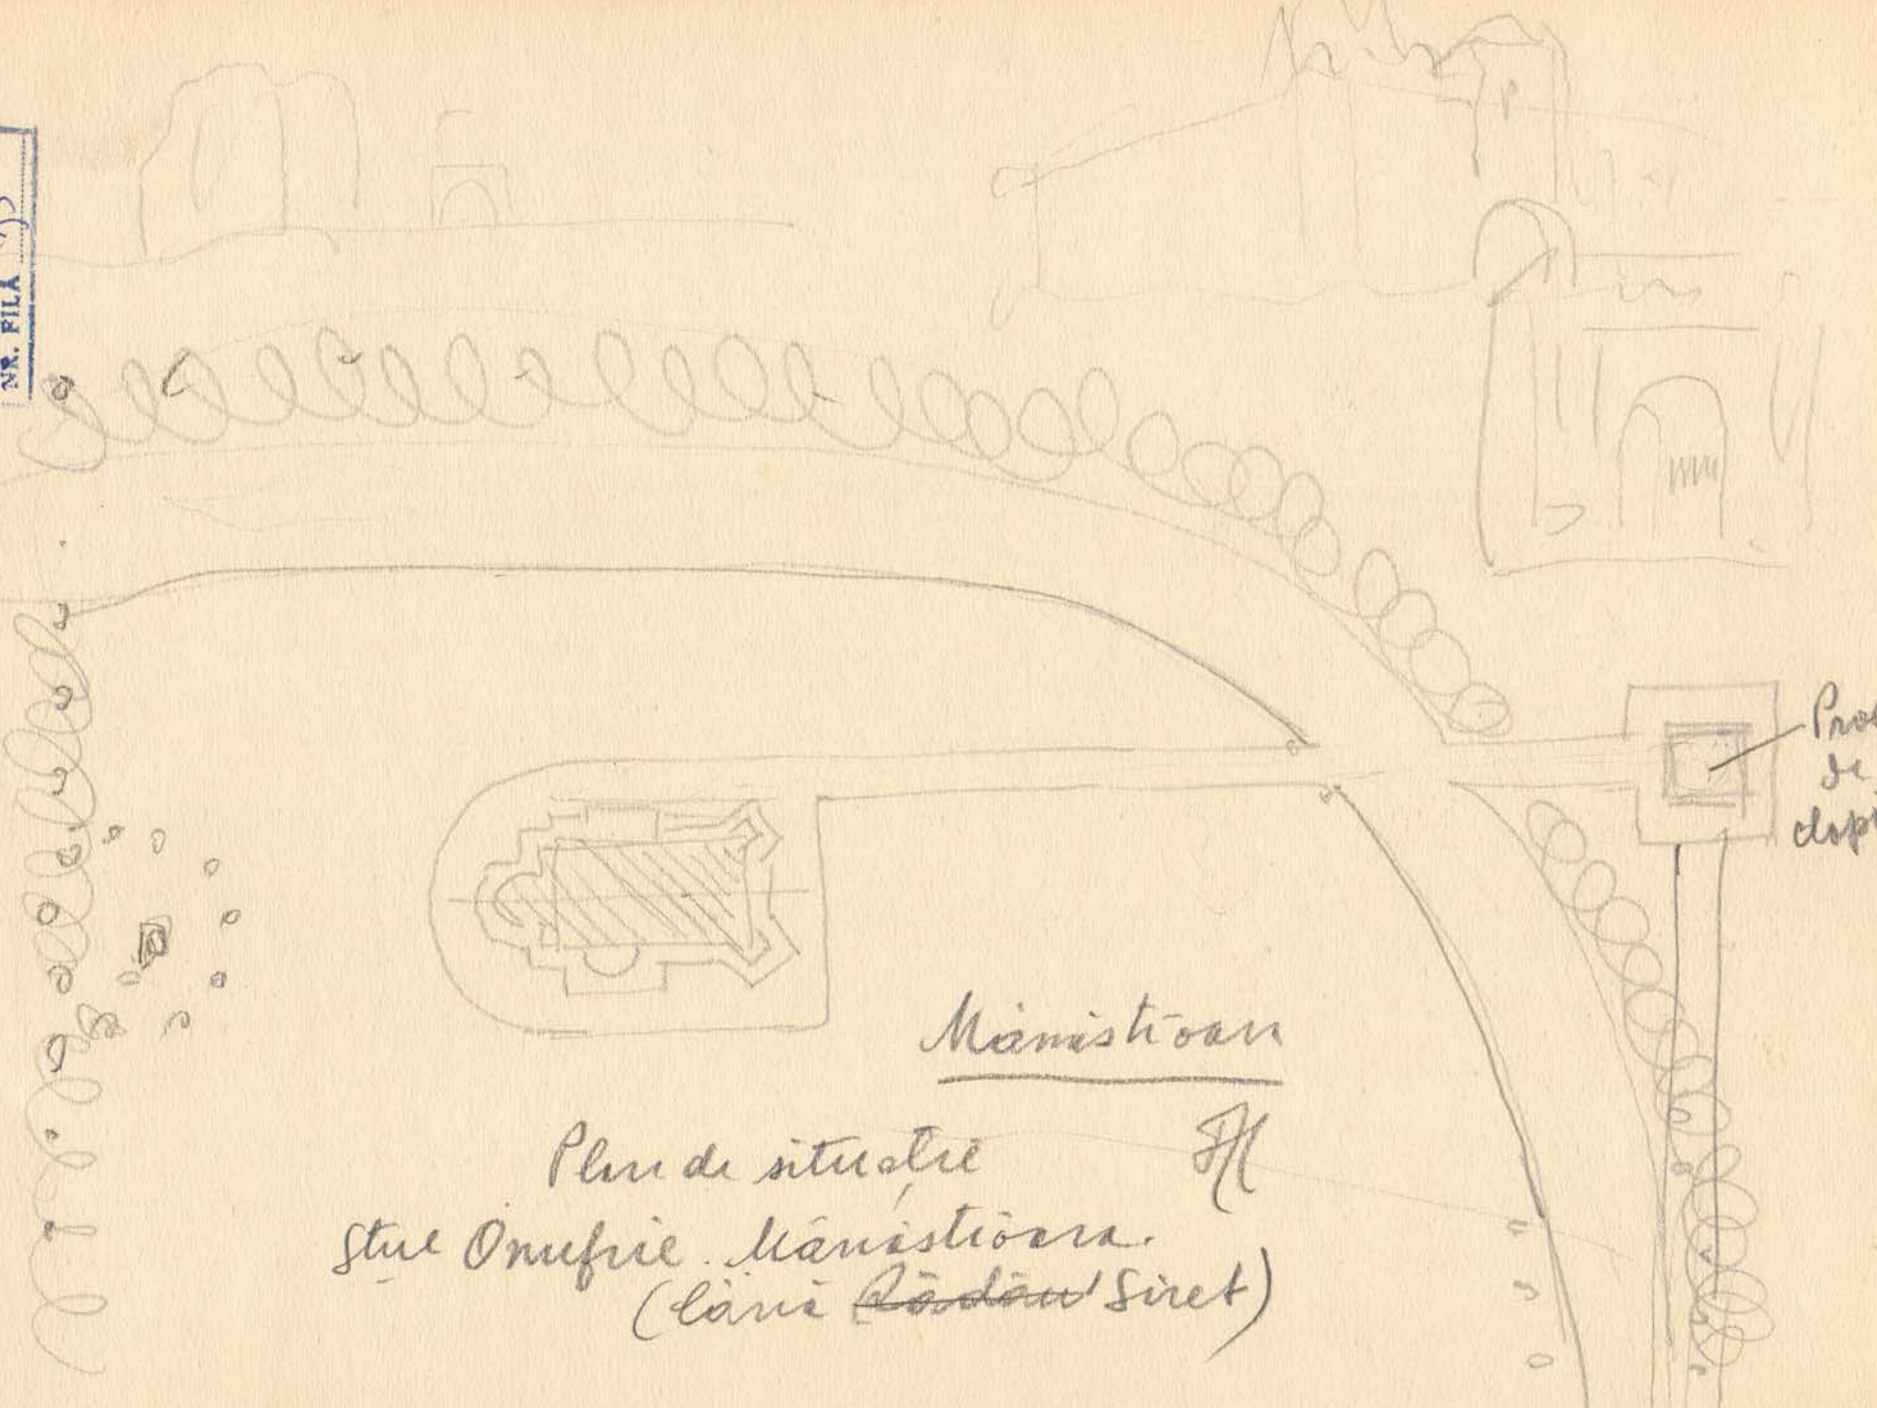 NR. FILĂ
de
Mănăstioara
Plan de situație
Sful Onufrie. Mănăstioara.
(lână Rădău Siret)